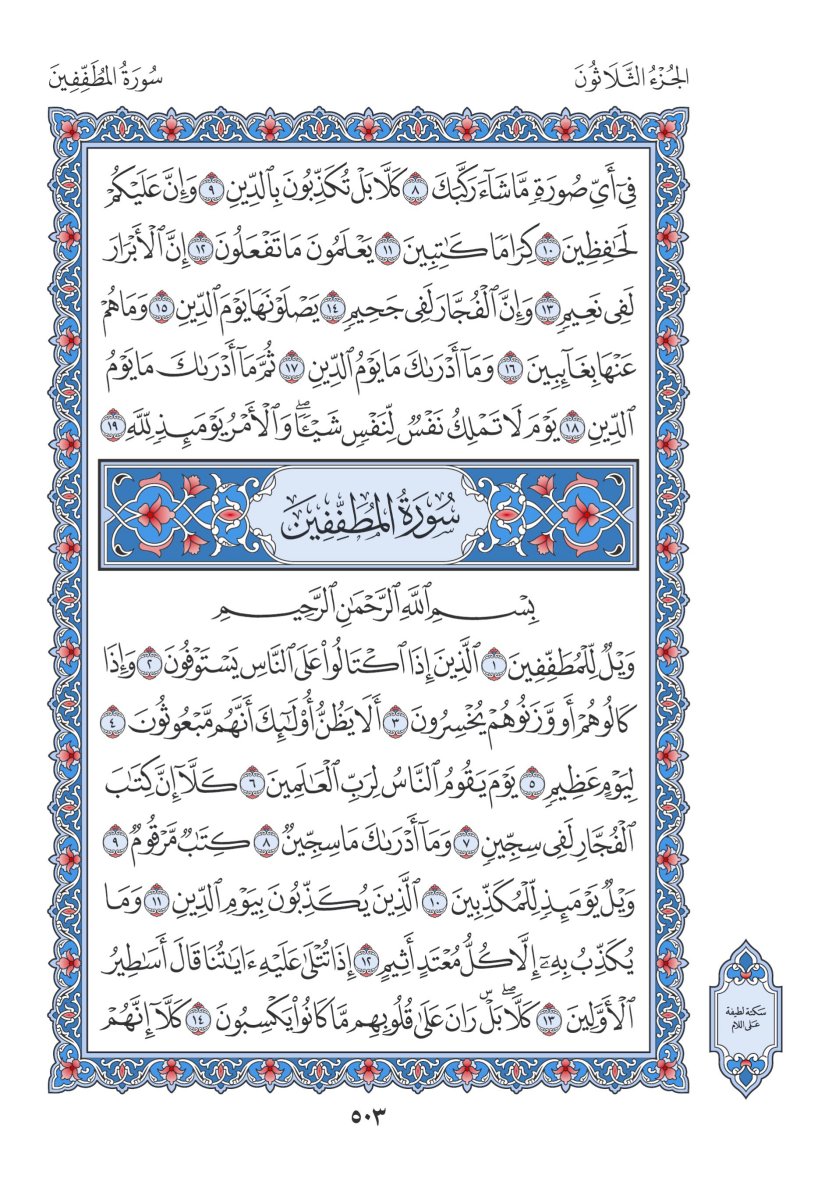 الجُزْءُ الثَّلَاثُونَ
سُورَةُ المُطَفِّفِينَ
فِىٓ أَىِّ صُورَةٖ مَّا شَآءَ رَكَّبَكَ ٨ كَلَّا بَلۡ تُكَذِّبُونَ بِٱلدِّينِ ٩ وَإِنَّ عَلَيۡكُمۡ
لَحَٰفِظِينَ ١٠ كِرَامٗا كَٰتِبِينَ ١١ يَعۡلَمُونَ مَا تَفۡعَلُونَ ١٢ إِنَّ ٱلۡأَبۡرَارَ
لَفِى نَعِيمٖ ١٣ وَإِنَّ ٱلۡفُجَّارَ لَفِى جَحِيمٖ ١٤ يَصۡلَوۡنَهَا يَوۡمَ ٱلدِّينِ ١٥ وَمَا هُمۡ
عَنۡهَا بِغَآئِبِينَ ١٦ وَمَآ أَدۡرَىٰكَ مَا يَوۡمُ ٱلدِّينِ ١٧ ثُمَّ مَآ أَدۡرَىٰكَ مَا يَوۡمُ
ٱلدِّينِ ١٨ يَوۡمَ لَا تَمۡلِكُ نَفۡسٞ لِّنَفۡسٖ شَيۡـٔٗاۖ وَٱلۡأَمۡرُ يَوۡمَئِذٖ لِّلَّهِ ١٩
سُورَةُ المُطَفِّفِينَ
بِسۡمِ ٱللَّهِ ٱلرَّحۡمَٰنِ ٱلرَّحِيمِ
وَيۡلٞ لِّلۡمُطَفِّفِينَ ١ ٱلَّذِينَ إِذَا ٱكۡتَالُواْ عَلَى ٱلنَّاسِ يَسۡتَوۡفُونَ ٢ وَإِذَا
كَالُوهُمۡ أَو وَّزَنُوهُمۡ يُخۡسِرُونَ ٣ أَلَا يَظُنُّ أُوْلَٰٓئِكَ أَنَّهُم مَّبۡعُوثُونَ ٤
لِيَوۡمٍ عَظِيمٖ ٥ يَوۡمَ يَقُومُ ٱلنَّاسُ لِرَبِّ ٱلۡعَٰلَمِينَ ٦ كَلَّآ إِنَّ كِتَٰبَ
ٱلۡفُجَّارِ لَفِى سِجِّينٖ ٧ وَمَآ أَدۡرَىٰكَ مَا سِجِّينٞ ٨ كِتَٰبٞ مَّرۡقُومٞ ٩
وَيۡلٞ يَوۡمَئِذٖ لِّلۡمُكَذِّبِينَ ١٠ ٱلَّذِينَ يُكَذِّبُونَ بِيَوۡمِ ٱلدِّينِ ١١ وَمَا
يُكَذِّبُ بِهِۦٓ إِلَّا كُلُّ مُعۡتَدٍ أَثِيمٍ ١٢ إِذَا تُتۡلَىٰ عَلَيۡهِ ءَايَٰتُنَا قَالَ أَسَٰطِيرُ
ٱلۡأَوَّلِينَ ١٣ كَلَّاۖ بَلۡۜ رَانَ عَلَىٰ قُلُوبِهِم مَّا كَانُواْ يَكۡسِبُونَ ١٤ كَلَّآ إِنَّهُمۡ
سَكتة لطيفة
عَلى اللام
٥٠٣